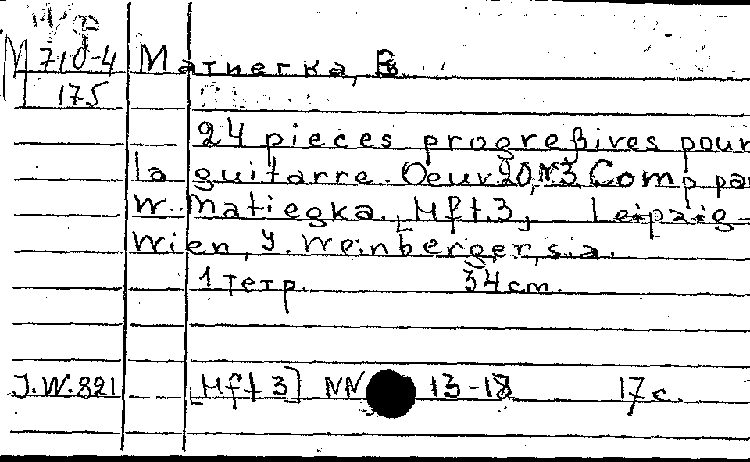 М 710-4 Матиегка, В.
175
24 pieces progreßives pour
la guitarre. Oeuv 20, N3 Comp. par
W. Matiegka. [Hft. 3] Leipzig-
Wien, J. Weinberger, s.a.
1 тетр. 34 cm.
J.W.821 [Hft 3] NN 13-18 17 с.